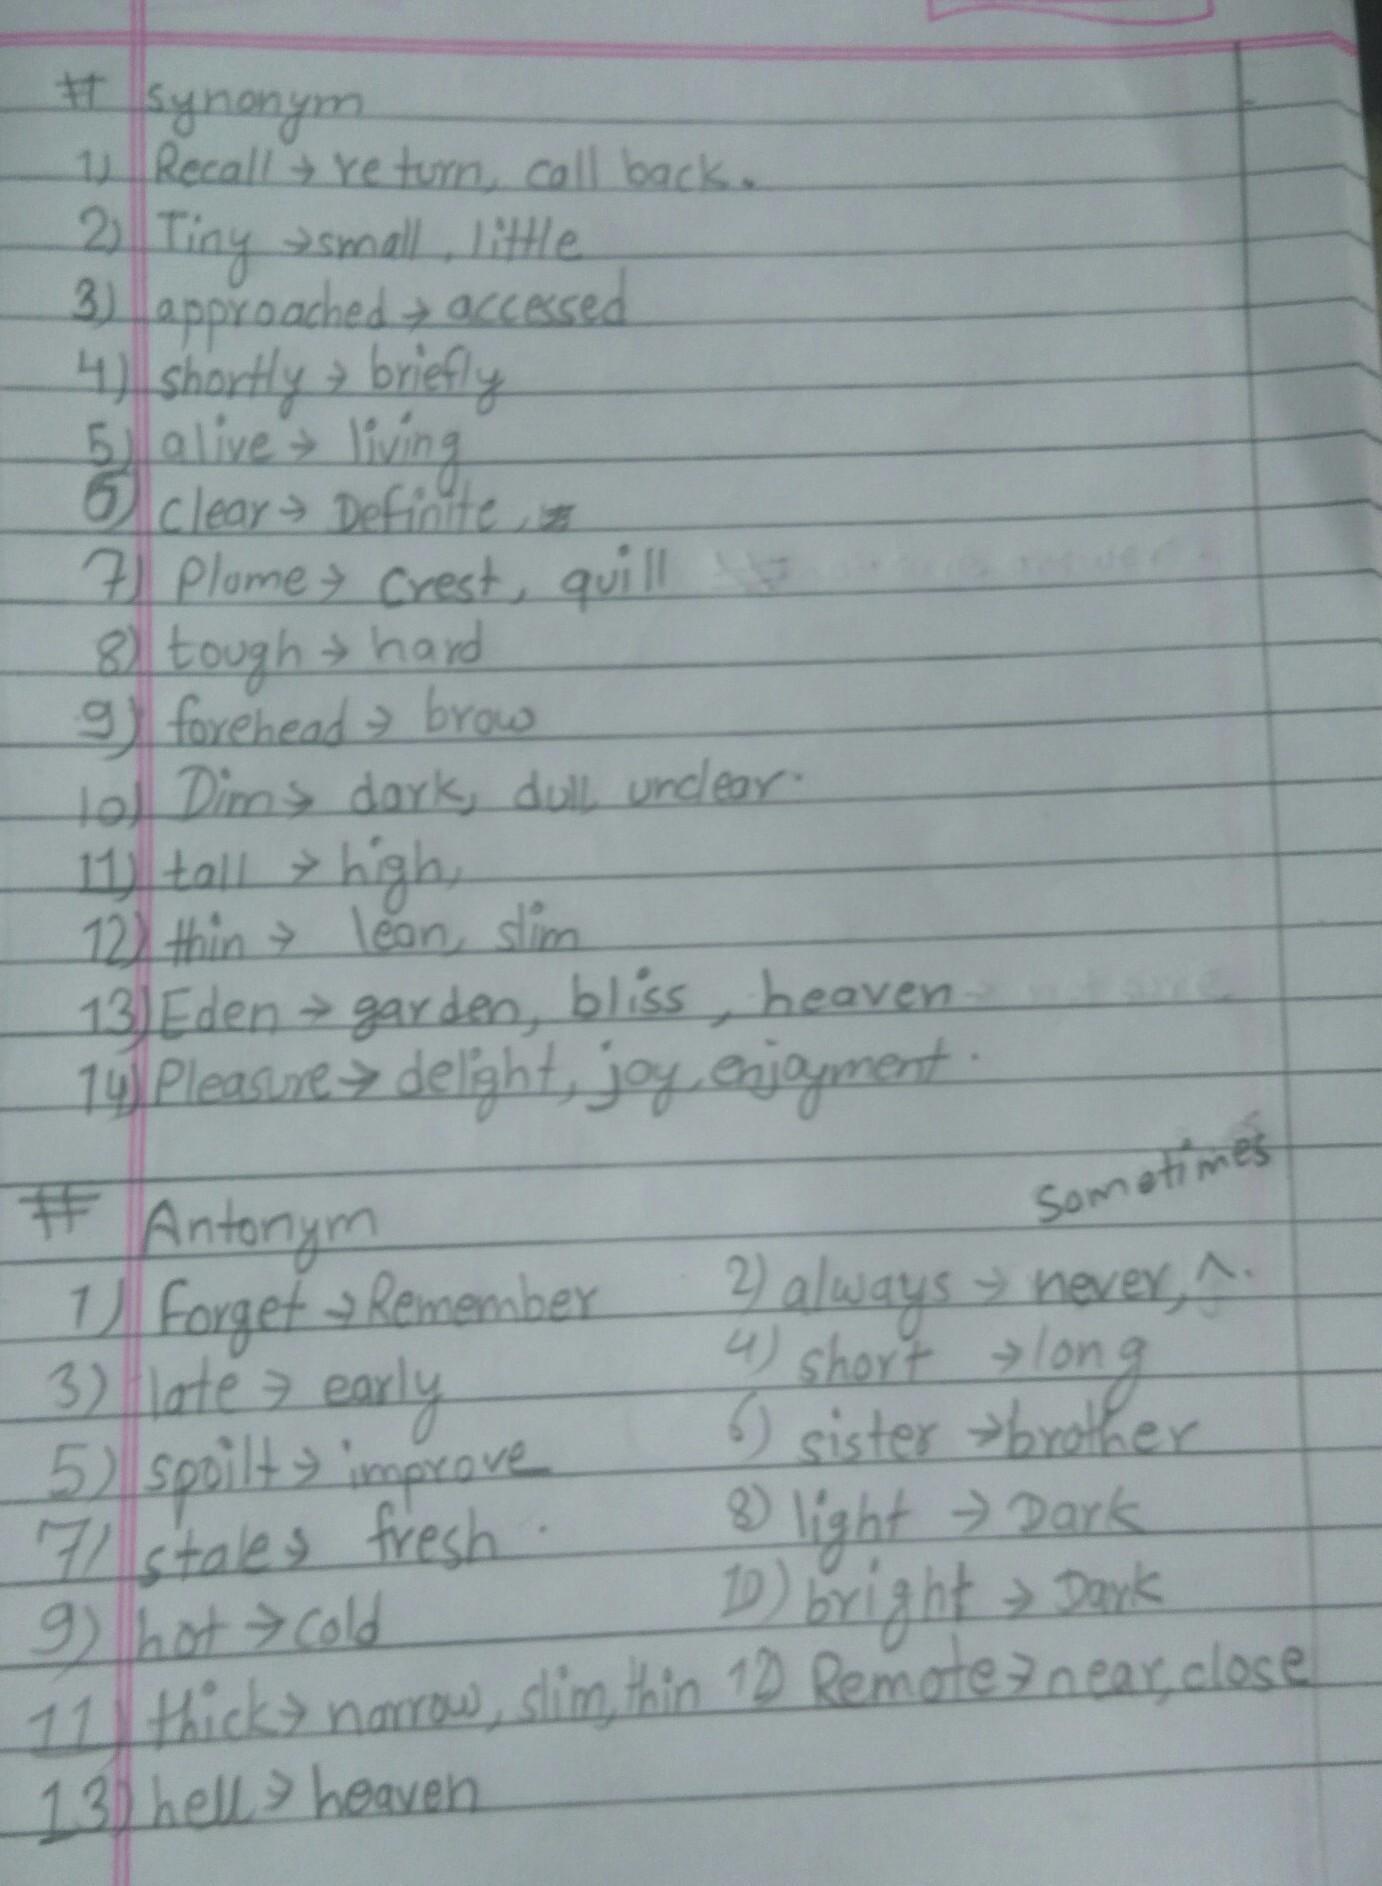 # synonym
1) Recall → return, call back.
2) Tiny → small, little
3) approached → accessed
4) shortly → briefly
5) alive → living
6) clear → Definite,
7) Plume → crest, quill
8) tough → hard
9) forehead → brow
10) Dim → dark, dull unclear.
11) tall → high,
12) thin → lean, slim
13) Eden → garden, bliss, heaven
14) Pleasure → delight, joy, enjoyment.
# Antonym
sometimes
1) Forget → Remember 2) always → never, ^.
3) late → early 4) short → long
5) spoilt → improve 6) sister → brother
7) stale → fresh. 8) light → Dark
9) hot → cold 10) bright → Dark
11) thick → narrow, slim, thin 12) Remote → near, close
13) hell → heaven